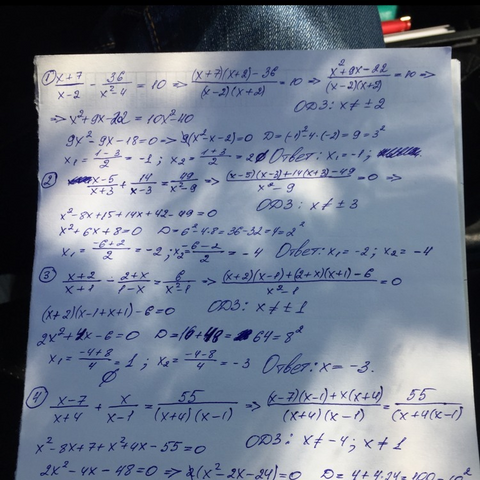 ① x+7/x-2 - 36/x²-4 = 10 => (x+7)(x+2)-36/(x-2)(x+2) = 10 => x²+9x-22/(x-2)(x+2) = 10 =>
ОДЗ: x ≠ ±2
=> x²+9x-22 = 10x²-40
9x²-9x-18=0 => 9(x²-x-2)=0 D=(-1)²-4·(-2)=9=3²
x₁ = 1-3/2 = -1; x₂ = 1+3/2 = 2∅ Ответ: x₁=-1;
② x-5/x+3 + 14/x-3 = 49/x²-9 => (x-5)(x-3)+14(x+3)-49/x²-9 = 0 =>
x²-8x+15+14x+42-49=0 ОДЗ: x ≠ ±3
x²+6x+8=0 D=6²-4·8=36-32=4=2²
x₁ = -6+2/2 = -2; x₂ = -6-2/2 = -4 Ответ: x₁=-2; x₂=-4
③ x+2/x+1 - 2+x/1-x = 6/x²-1 => (x+2)(x-1)+(2+x)(x+1)-6/x²-1 = 0
(x+2)(x-1+x+1)-6=0 ОДЗ: x ≠ ±1
2x²+4x-6=0 D=16+48=64=8²
x₁ = -4+8/4 = 1; x₂ = -4-8/4 = -3 Ответ: x=-3.
∅
④ x-7/x+4 + x/x-1 = 55/(x+4)(x-1) => (x-7)(x-1)+x(x+4)/(x+4)(x-1) = 55/(x+4)(x-1)
x²-8x+7+x²+4x-55=0 ОДЗ: x ≠ -4; x ≠ 1
2x²-4x-48=0 => 2(x²-2x-24)=0 D=4+4·24=100=10²